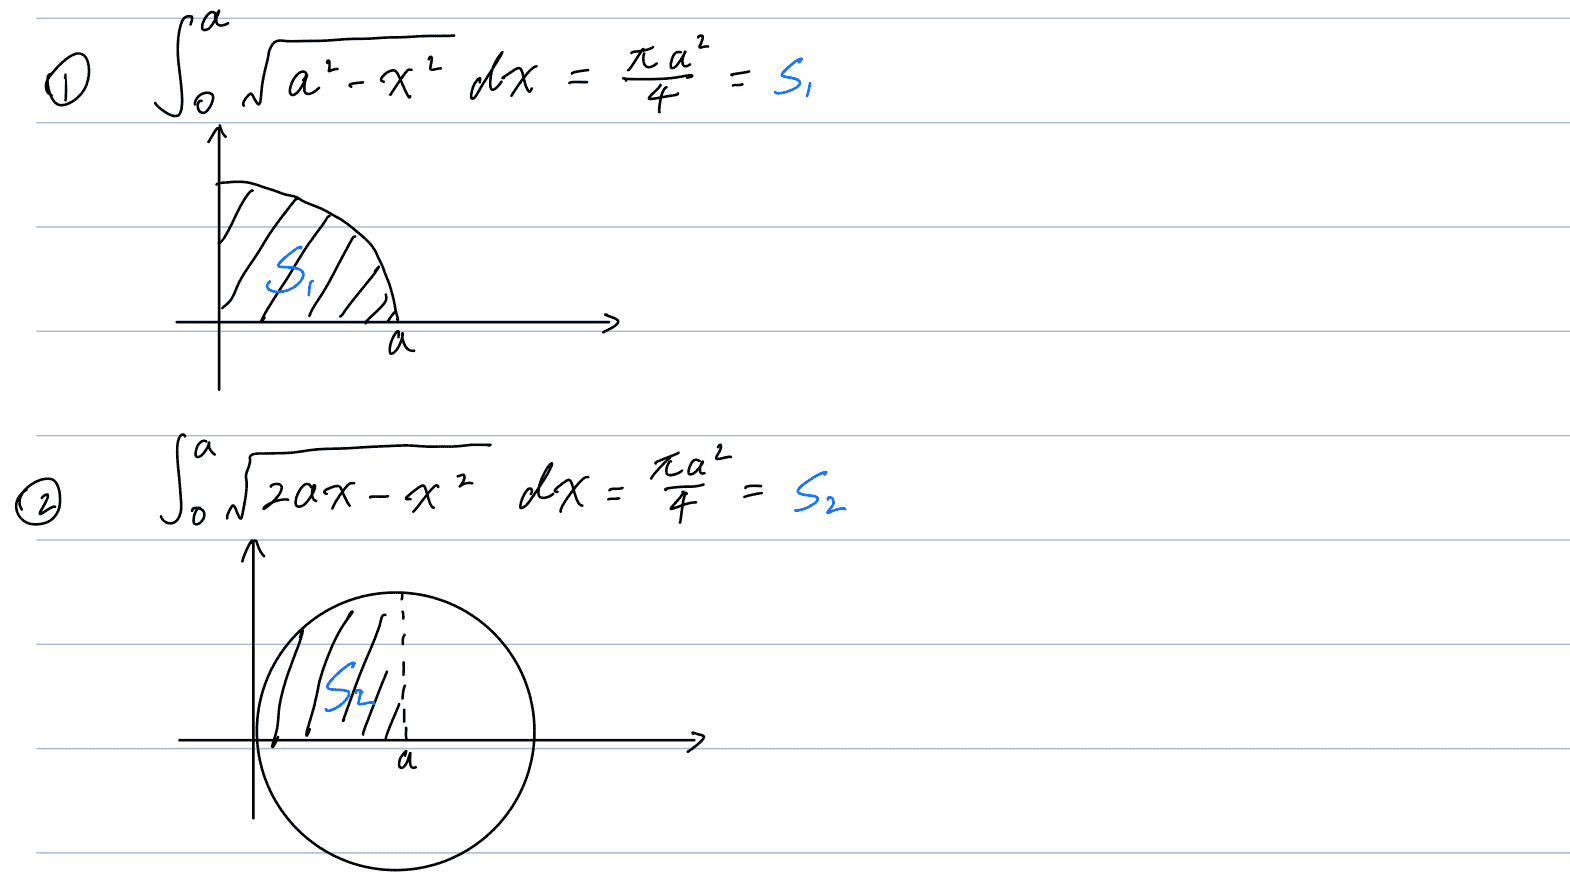 ① ∫₀ᵃ √(a² - x²) dx = πa²/4 = S₁
S₁
a
② ∫₀ᵃ √(2ax - x²) dx = πa²/4 = S₂
S₂
a